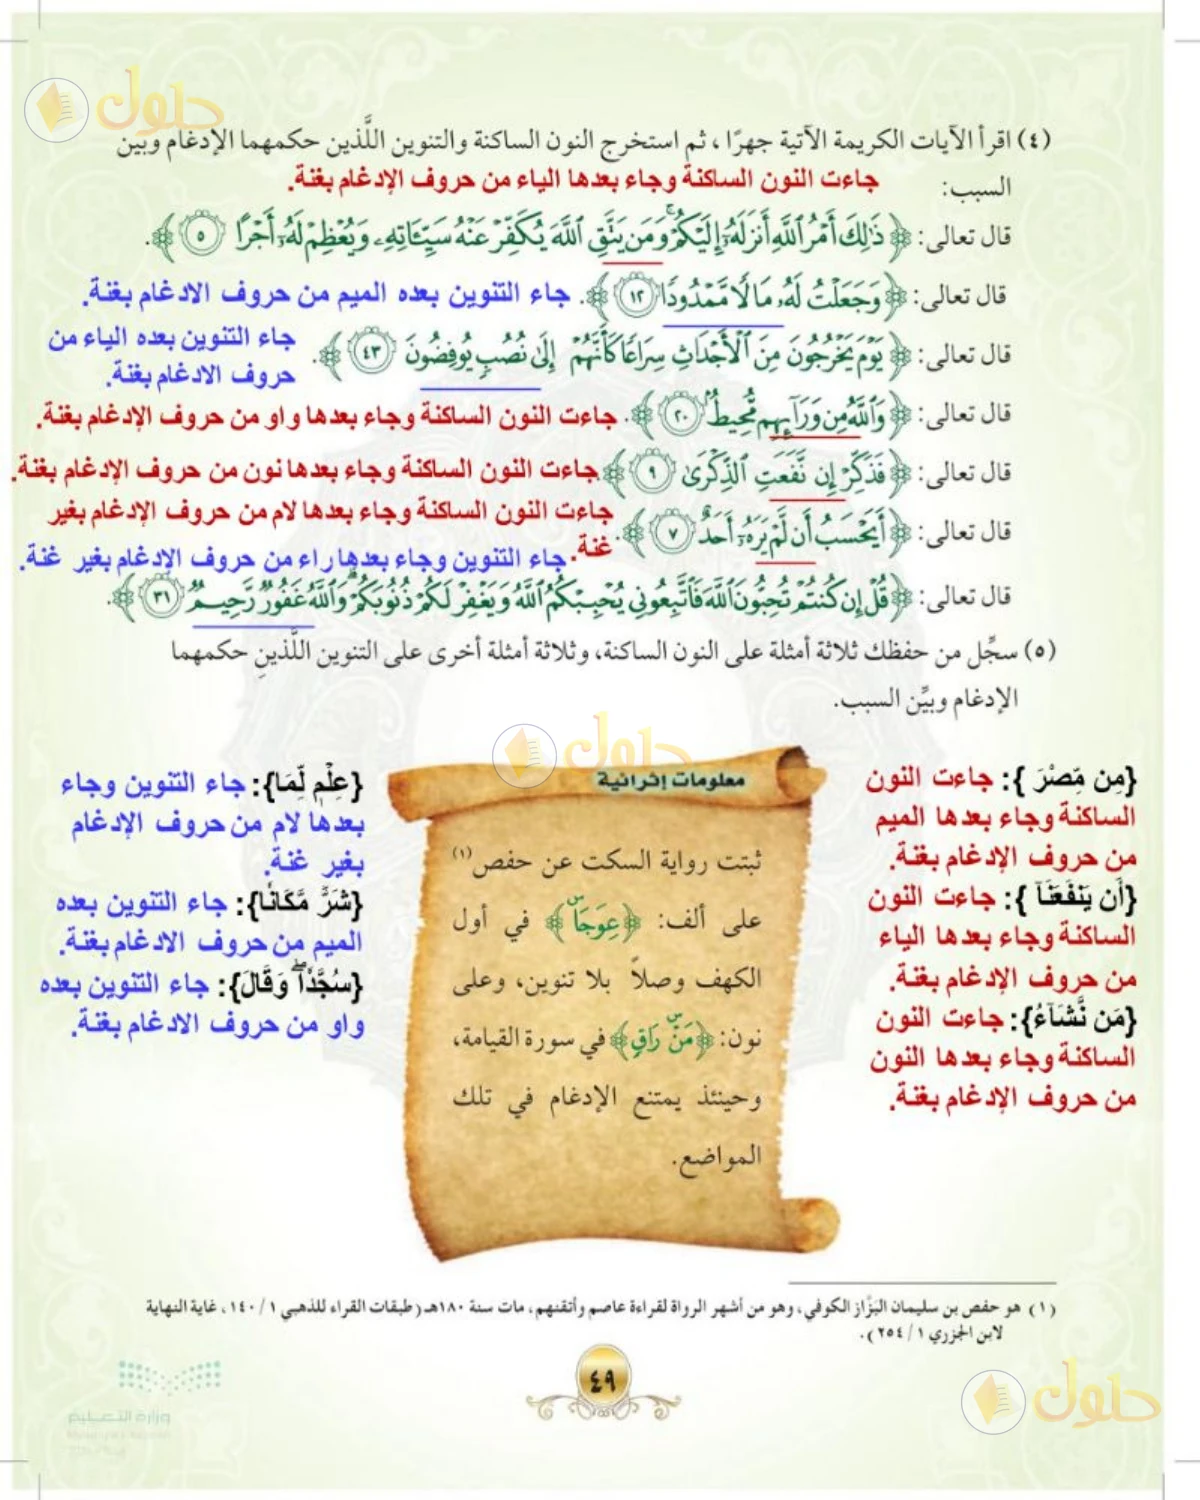 حلول
(٤) اقرأ الآيات الكريمة الآتية جهرًا ، ثم استخرج النون الساكنة والتنوين اللَّذين حكمهما الإدغام وبين
السبب:
جاءت النون الساكنة وجاء بعدها الياء من حروف الإدغام بغنة.
قال تعالى: ﴿ذَٰلِكَ أَمْرُ ٱللَّهِ أَنزَلَهُۥٓ إِلَيْكُمْ ۚ وَمَن يَتَّقِ ٱللَّهَ يُكَفِّرْ عَنْهُ سَيِّـَٔاتِهِۦ وَيُعْظِمْ لَهُۥٓ أَجْرًا ٥﴾.
قال تعالى: ﴿وَجَعَلْتُ لَهُۥ مَالًا مَّمْدُودًا ١٢﴾. جاء التنوين بعده الميم من حروف الادغام بغنة.
قال تعالى: ﴿يَوْمَ يَخْرُجُونَ مِنَ ٱلْأَجْدَاثِ سِرَاعًا كَأَنَّهُمْ إِلَىٰ نُصُبٍ يُوفِضُونَ ٤٣﴾.
جاء التنوين بعده الياء من
حروف الادغام بغنة.
قال تعالى: ﴿وَٱللَّهُ مِن وَرَآئِهِم مُّحِيطٌۢ ٢٠﴾. جاءت النون الساكنة وجاء بعدها واو من حروف الإدغام بغنة.
قال تعالى: ﴿فَذَكِّرْ إِن نَّفَعَتِ ٱلذِّكْرَىٰ ٩﴾. جاءت النون الساكنة وجاء بعدها نون من حروف الإدغام بغنة.
قال تعالى: ﴿أَيَحْسَبُ أَن لَّمْ يَرَهُۥٓ أَحَدٌ ٧﴾.
جاءت النون الساكنة وجاء بعدها لام من حروف الإدغام بغير
غنة.
جاء التنوين وجاء بعدها راء من حروف الإدغام بغير غنة.
قال تعالى: ﴿قُلْ إِن كُنتُمْ تُحِبُّونَ ٱللَّهَ فَٱتَّبِعُونِى يُحْبِبْكُمُ ٱللَّهُ وَيَغْفِرْ لَكُمْ ذُنُوبَكُمْ ۗ وَٱللَّهُ غَفُورٌ رَّحِيمٌ ٣١﴾.
(٥) سجِّل من حفظك ثلاثة أمثلة على النون الساكنة، وثلاثة أمثلة أخرى على التنوين اللَّذينِ حكمهما
الإدغام وبيِّن السبب.
حلول
{مِن مِّصْرَ }: جاءت النون
الساكنة وجاء بعدها الميم
من حروف الإدغام بغنة.
{أَن يَنفَعَنَآ }: جاءت النون
الساكنة وجاء بعدها الياء
من حروف الإدغام بغنة.
{مَن نَّشَآءُ}: جاءت النون
الساكنة وجاء بعدها النون
من حروف الإدغام بغنة.
معلومات إثرائية
ثبتت رواية السكت عن حفص(١)
على ألف: ﴿عِوَجَاۜ﴾ في أول
الكهف وصلاً بلا تنوين، وعلى
نون: ﴿مَنْۜ رَاقٍ﴾ في سورة القيامة،
وحينئذ يمتنع الإدغام في تلك
المواضع.
{عِلْمٍ لِّمَا}: جاء التنوين وجاء
بعدها لام من حروف الإدغام
بغير غنة.
{شَرٌّ مَّكَانًا}: جاء التنوين بعده
الميم من حروف الادغام بغنة.
{سُجَّدًا ۖ وَقَالَ}: جاء التنوين بعده
واو من حروف الادغام بغنة.
(١) هو حفص بن سليمان البَزَّاز الكوفي، وهو من أشهر الرواة لقراءة عاصم وأتقنهم، مات سنة ١٨٠هـ (طبقات القراء للذهبي ١/ ١٤٠، غاية النهاية
لابن الجزري ١/ ٢٥٤).
٤٩
وزارة التعليم
حلول